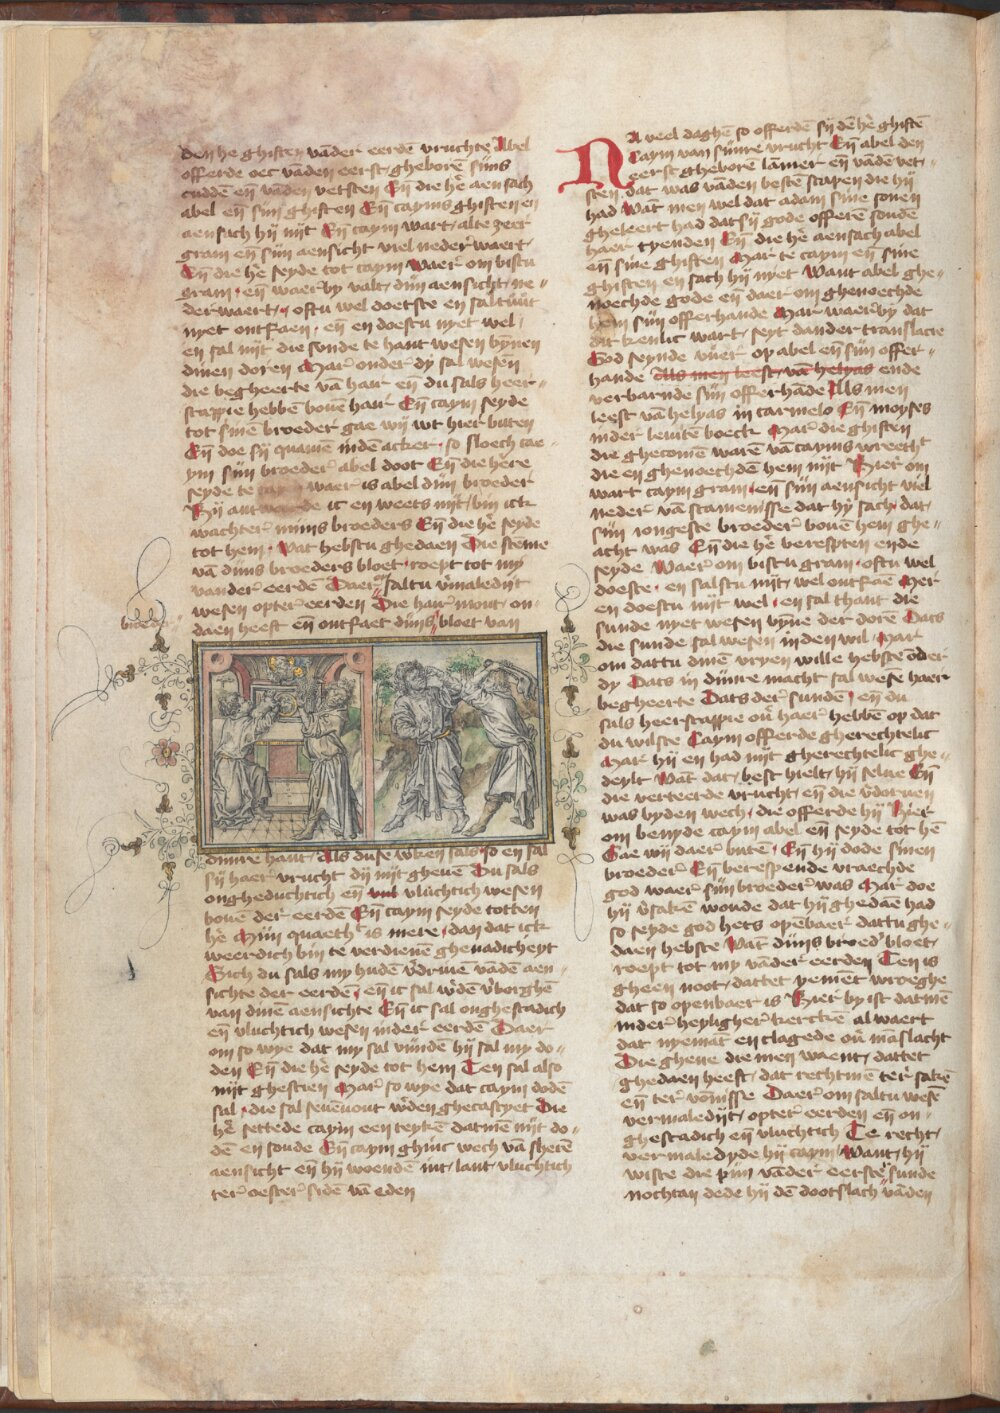 den he ghiften vāder eerdē vruchte Abel
offerde oec vāden eerst gheborē sijns
cuddē en̄ vāden vetsten En̄ die hē aensach
abel en̄ sijn ghiften En̄ cayms ghiften en
aensach hij nijt En̄ caym wart alte zeer
gram en̄ sijn aensicht viel neder waert
En̄ die hē seyde tot caym Waer om bistu
gram en̄ waer by valt dijn aensicht ne〃
derwaert oftu wel doetste en saltuut
nyet ontfaen en̄ en doestu nyet wel
en sal nijt die sonde te hant wesen bynen
dinen doren Mar onder dy sal wesen
die begheerte vā haer en̄ du sals heer〃
scappie hebbē bouē haer En̄ caym seyde
tot sinē broeder gae wij wt hier buten
En̄ doe sij quamē inden acker so sloech cae〃
ym sijn broeder abel doot En̄ die here
seyde te waer is abel dijn broeder
Hij antwoerde ic en weets nijt bin ick
wachter mijns broeders En̄ die hē seyde
tot hem Wat hebstu ghedaen Die stēme
vā dijns broeders bloet roept tot my
vander eerden Daer om saltu vmaledijt
wesen opter eerden Die haer mont on〃
broeder
daen heeft en̄ ontfaet dijns bloet van
dinre hant Als duse wken sals so en sal
sij haer vrucht dij nijt gheuē Du sals
onghedurhtich en̄ vluchtich wesen
bouē der eerde En̄ caym seyde totten
hē Mijn quaeth is mere dan dat ick
weerdich bin te verdienē ghenadicheyt
Sich du sals my hudē vdriuē vādē aen〃
sichte der eerdē en̄ ic sal wdē vborghē
van dinē aensichte En̄ ic sal onghestadich
en̄ vluchtich wesen inder eerdē Daer
om so wye dat my sal vijndē hij sal my do〃
den En̄ die hē seyde tot hem Ten sal also
nijt ghescien Mar so wye dat caym dodē
sal die sal seuēuout wdēn ghecastyet Die
hē settede caym een teykē datmē nijt do〃
dē en soude En̄ caym ghinc wech vā sherē
aensicht en̄ hij woende int lant vluchtich
ter oester sidē vā eden
NA veel daghē so offerdē sij dē hē ghiftē
Caym van sijnre vrucht En̄ abel den
eerst gheborē lāmer en̄ vādē vet〃
sten dat was vāden bestē scapen die hij
had Wāt men wel dat adam sine sonen
gheleert had dat sij gode offerē soudē
haer tyenden En̄ die hē aensach abel
en̄ sine ghiften Mar te caym en̄ sine
ghiften en sach hij nyet Want abel ghe〃
noechde gode en̄ daer om ghenoechde
hem sijn offerhande Mar waer by dat
dit kenlic wart seyt dander translacie
God seynde vuer op abel en̄ sijn offer〃
hande Als men leest vā helyas ende
verbarnde sijn offerhāde Als men
leest vā helyas in carmelo En̄ moyses
inder leuitē boeck Mar die ghiften
die ghecomē warē vā cayms wreeth
die en ghenoechdē hem nijt Hier om
wart caym gram en̄ sijn aensicht viel
neder vā scamenisse dat hij sach dat
sijn iongeste broeder bouē hem ghe〃
acht was En̄ die hē berespten ende
seyde Waer om bistu gram oftu wel
doeste en salstu nijt wel ontfaē Mer
en doestu nijt wel en sal thant die
sunde nyet wesen vyne der dorē Dats
die sunde sal wesen inden wil Mar
om dattu dinē vryen wille hebste ōder
dy Dats in dinre macht sal wese haer
begheerte Dats der sundē en̄ du
sals heerscappie ou haer hebbē op dat
du wilste Caym offerde gherechtelic
Mar hij en had nijt gherechtelic ghe〃
deylt Wāt dat best hielt hij selue En̄
die verteerde vrucht en̄ die vdoruen
was byden wech die offerde hij Hier
om benyde caym abel en̄ seyde tot hē
Gae wij daer butē En̄ hij dode sinen
broeder En̄ berespende vraechde
god waer sijn broeder was Mar doe
hij vsakē woude dat hij ghedaē had
so seyde god hets opēbaer dattu ghe〃
daen hebste Wāt dijns broed bloet
roept tot my vāder eerden Ten is
gheen noot dattet yemēt wroeghe
dat so openbaer is Hier by ist datmē
inder heyligher kerckē al waert
dat nyemāt en clagede ou māslacht
Die ghene die men waent dattet
ghedaen heeft dat rechtmē ter sakē
en̄ ter vōnisse Daer om saltu wesē
vermaledijt opter eerden en̄ on〃
ghestadich en̄ vluchtich Te recht
vermaledyde hij caym Want hij
wiste die pijn vāder eerste sunde
nochtan dede hij dē dootslach vāden